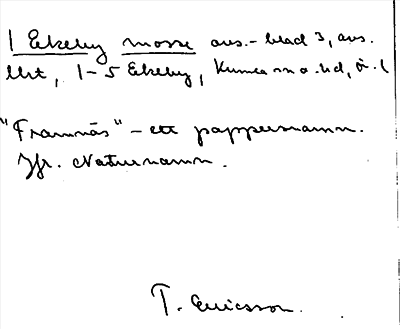 1 Ekeby mosse avs.- blad 3, avs.
utst, 1-5 Ekeby, Kumla sn o. hd, ö. l
"Framnäs" - ett pappersnamn.
Jfr. Naturnamn.
T. Ericsson.